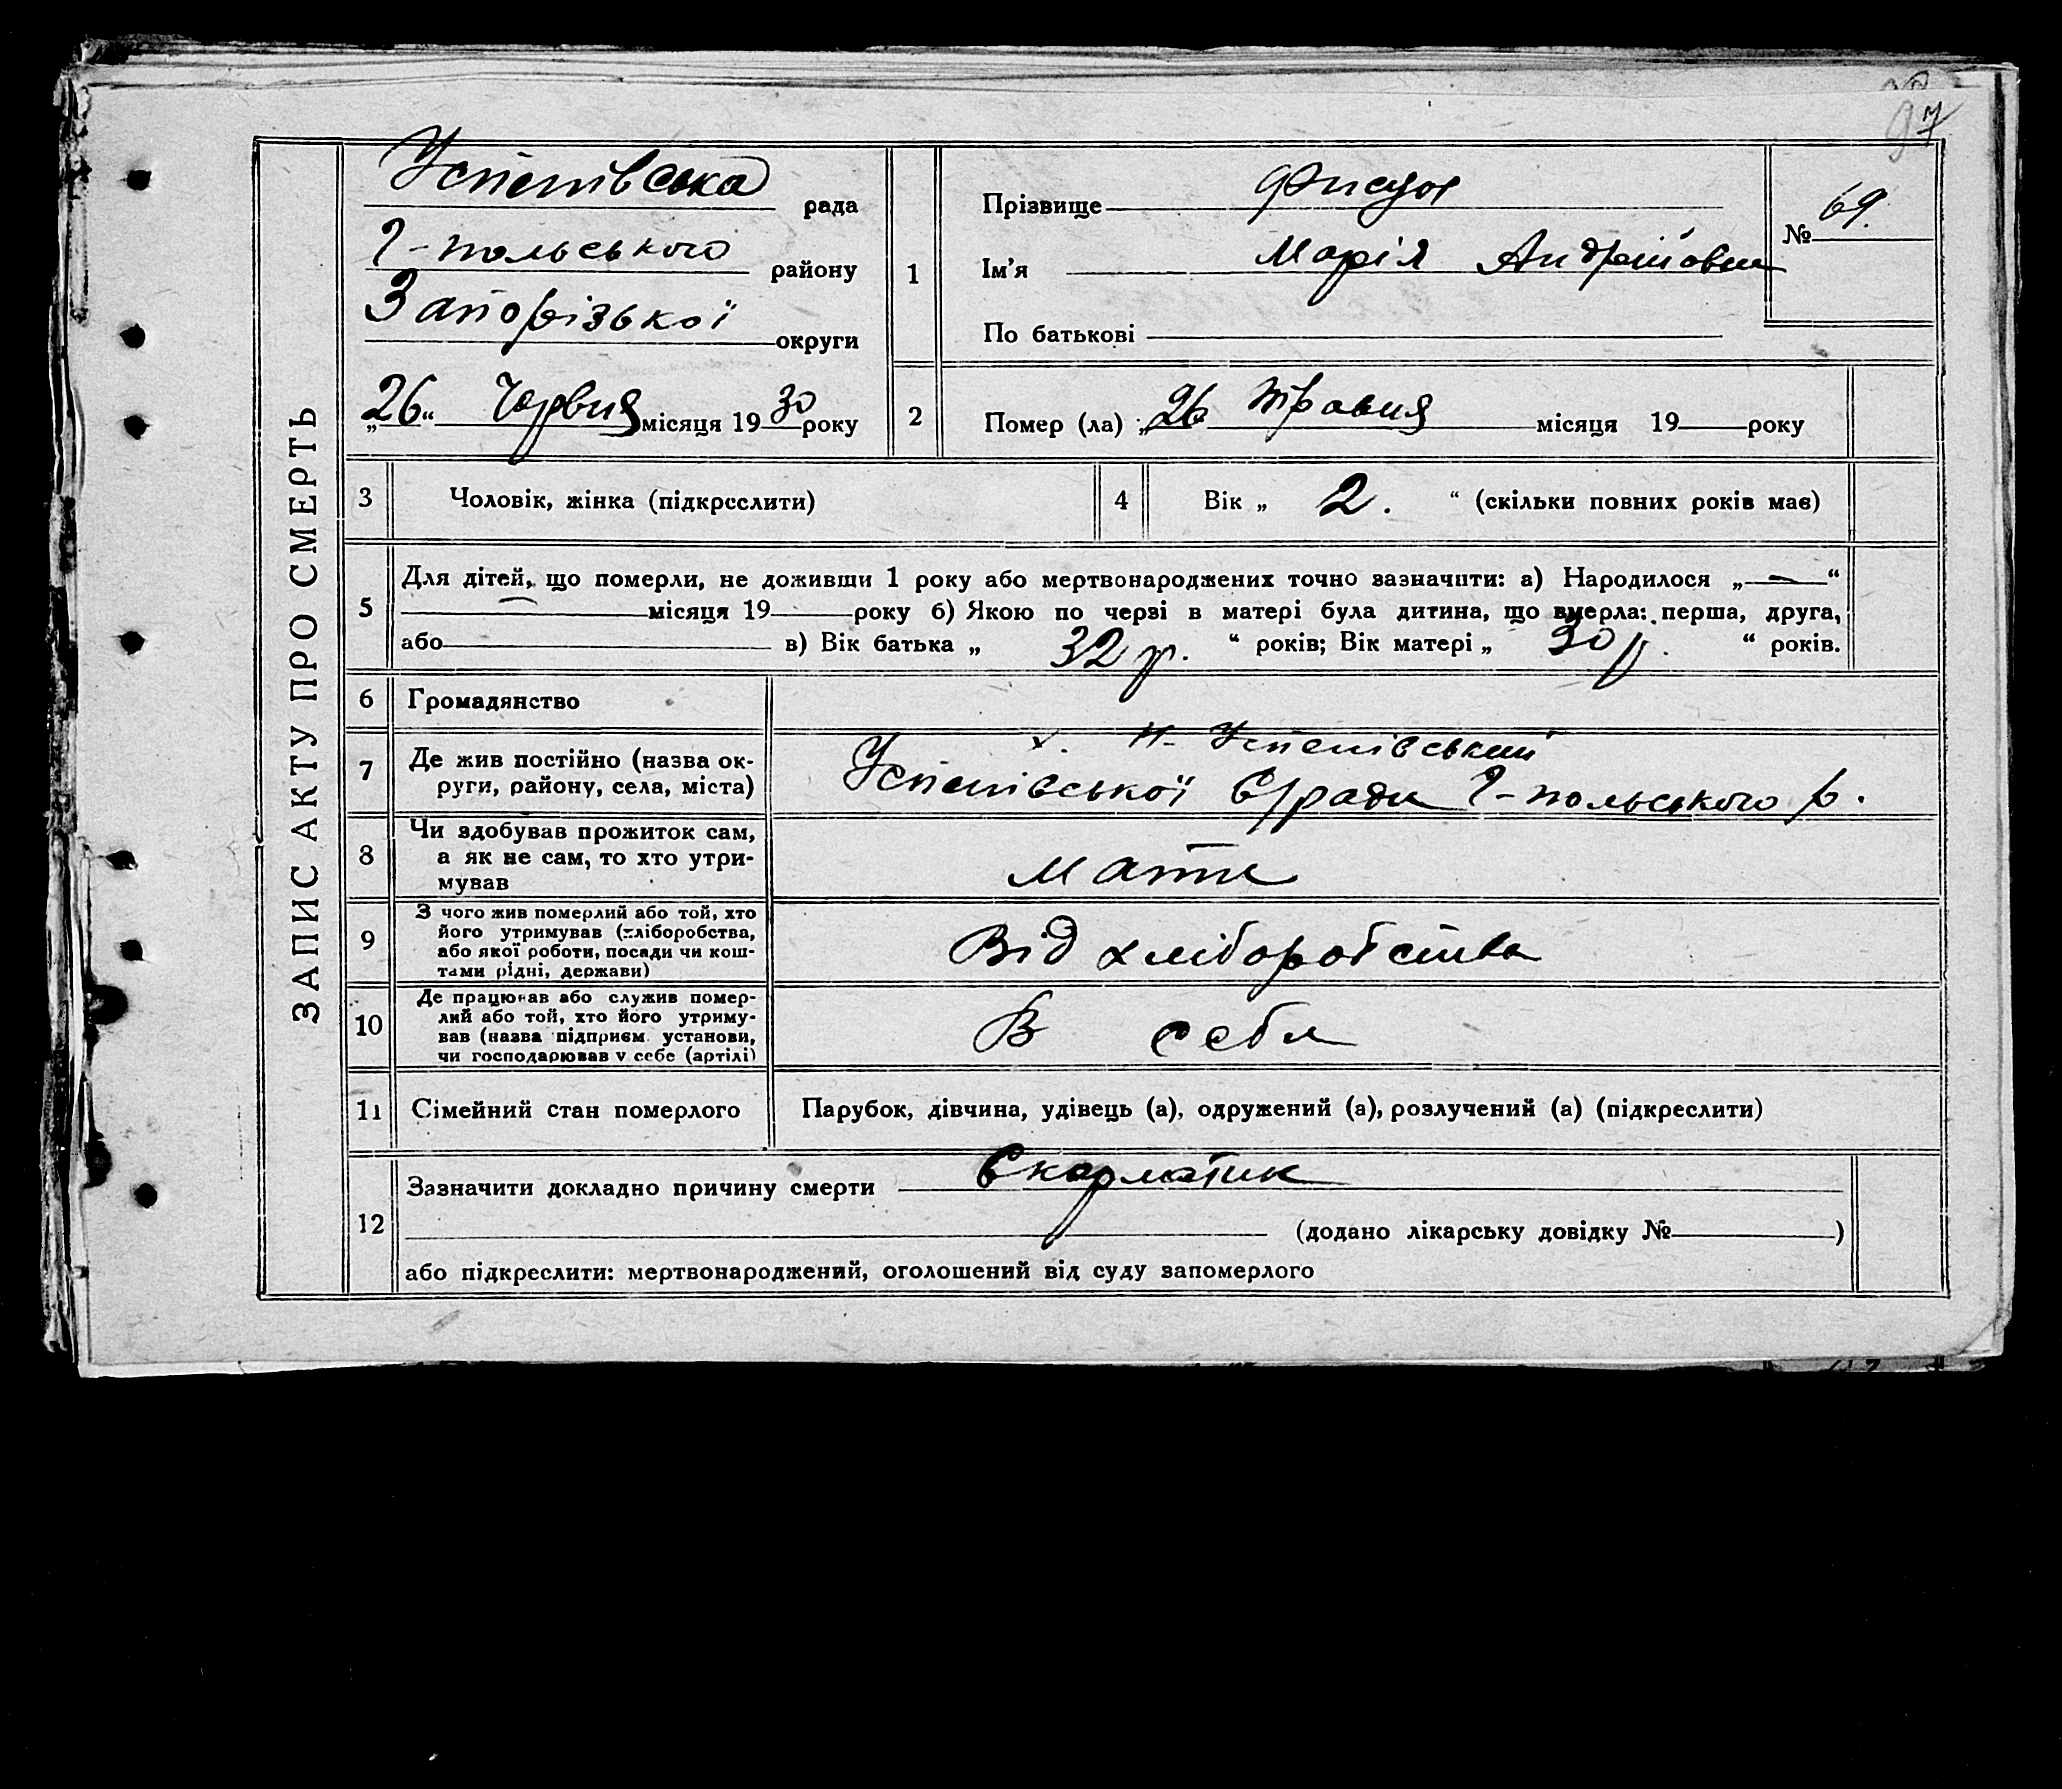 97
ЗАПИС АКТУ ПРО СМЕРТЬ
Успенівська рада
Г-польського району
Запорізької округи
„26“ Червня місяця 1930 року
1
Прізвище Фисун
Ім'я Марія Андрійовна
По батькові
№ 69.
2
Помер (ла) „26 травня місяця 19 року
3
Чоловік, жінка (підкреслити)
4
Вік „ 2. “ (скільки повних років має)
5
Для дітей, що померли, не доживши 1 року або мертвонароджених точно зазначити: а) Народилося „ — “
— місяця 19 року б) Якою по черзі в матері була дитина, що вмерла: перша, друга,
або в) Вік батька „ 32 р. “ років; Вік матері „ 30 р. “ років.
6
Громадянство
7
Де жив постійно (назва ок-
руги, району, села, міста)
х. Н-Успенівський
Успенівської с/ради Г-польського р.
8
Чи здобував прожиток сам,
а як не сам, то хто утри-
мував
мати
9
З чого жив померлий або той, хто
його утримував (хліборобства,
або якої роботи, посади чи кош-
тами рідні, держави)
Від хліборобства
10
Де працював або служив помер-
лий або той, хто його утриму-
вав (назва підприєм. установи,
чи господарював у себе (артілі)
В себе
11
Сімейний стан померлого
Парубок, дівчина, удівець (а), одружений (а), розлучений (а) (підкреслити)
12
Зазначити докладно причину смерти Скарлатик
(додано лікарську довідку № )
або підкреслити: мертвонароджений, оголошений від суду запомерлого